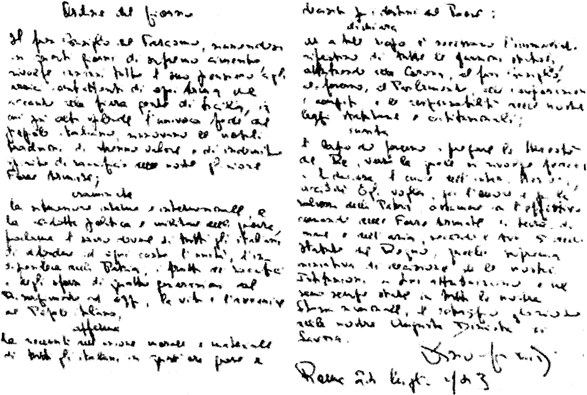 Ordine del giorno
Il Gran Consiglio del Fascismo, riunendosi
in questi giorni di supremo cimento
rivolge innanzi tutto il suo pensiero agli
eroici combattenti di ogni arma che
accanto alla fiera gente di Sicilia, in
cui più alta risplende l'univoca fede del
popolo italiano, rinnovano le nobili
tradizioni di strenuo valore e di indomito
spirito di sacrificio delle nostre gloriose
Forze Armate;
esaminata
la situazione interna e internazionale, e
la condotta politica e militare della guerra,
proclama il sacro dovere di tutti gli italiani
di difendere ad ogni costo l'unità, l'in-
dipendenza della Patria, i frutti dei sacrifici
e degli sforzi di quattro generazioni dal
Risorgimento ad oggi, la vita e l'avvenire
del Popolo italiano,
afferma
la necessità dell'unione morale e materiale
di tutti gli italiani in questa ora grave e
decisiva per i destini del Paese;
dichiara
che a tale scopo è necessario l'immediato
ripristino di tutte le funzioni statali,
attribuendo alla Corona, al Gran Consiglio,
al Governo, al Parlamento, alle Corporazioni
i compiti e le responsabilità dalle nostre
leggi statutarie e costituzionali;
invita
il Capo del Governo a pregare la Maestà
del Re, verso la quale si rivolge fedele
e il cuore
Egli voglia, per l'onore e la
salvezza della Patria assumere l'effettivo
comando delle Forze Armate di terra, di
mare e dell'aria, secondo l'art. 5 dello
Statuto del Regno, quella suprema
iniziativa di decisione che le nostre
Istituzioni a Lui attribuiscono e che
sono sempre state in tutta la nostra
storia nazionale, il retaggio glorioso
della nostra Augusta Dinastia di
Savoia.
Roma